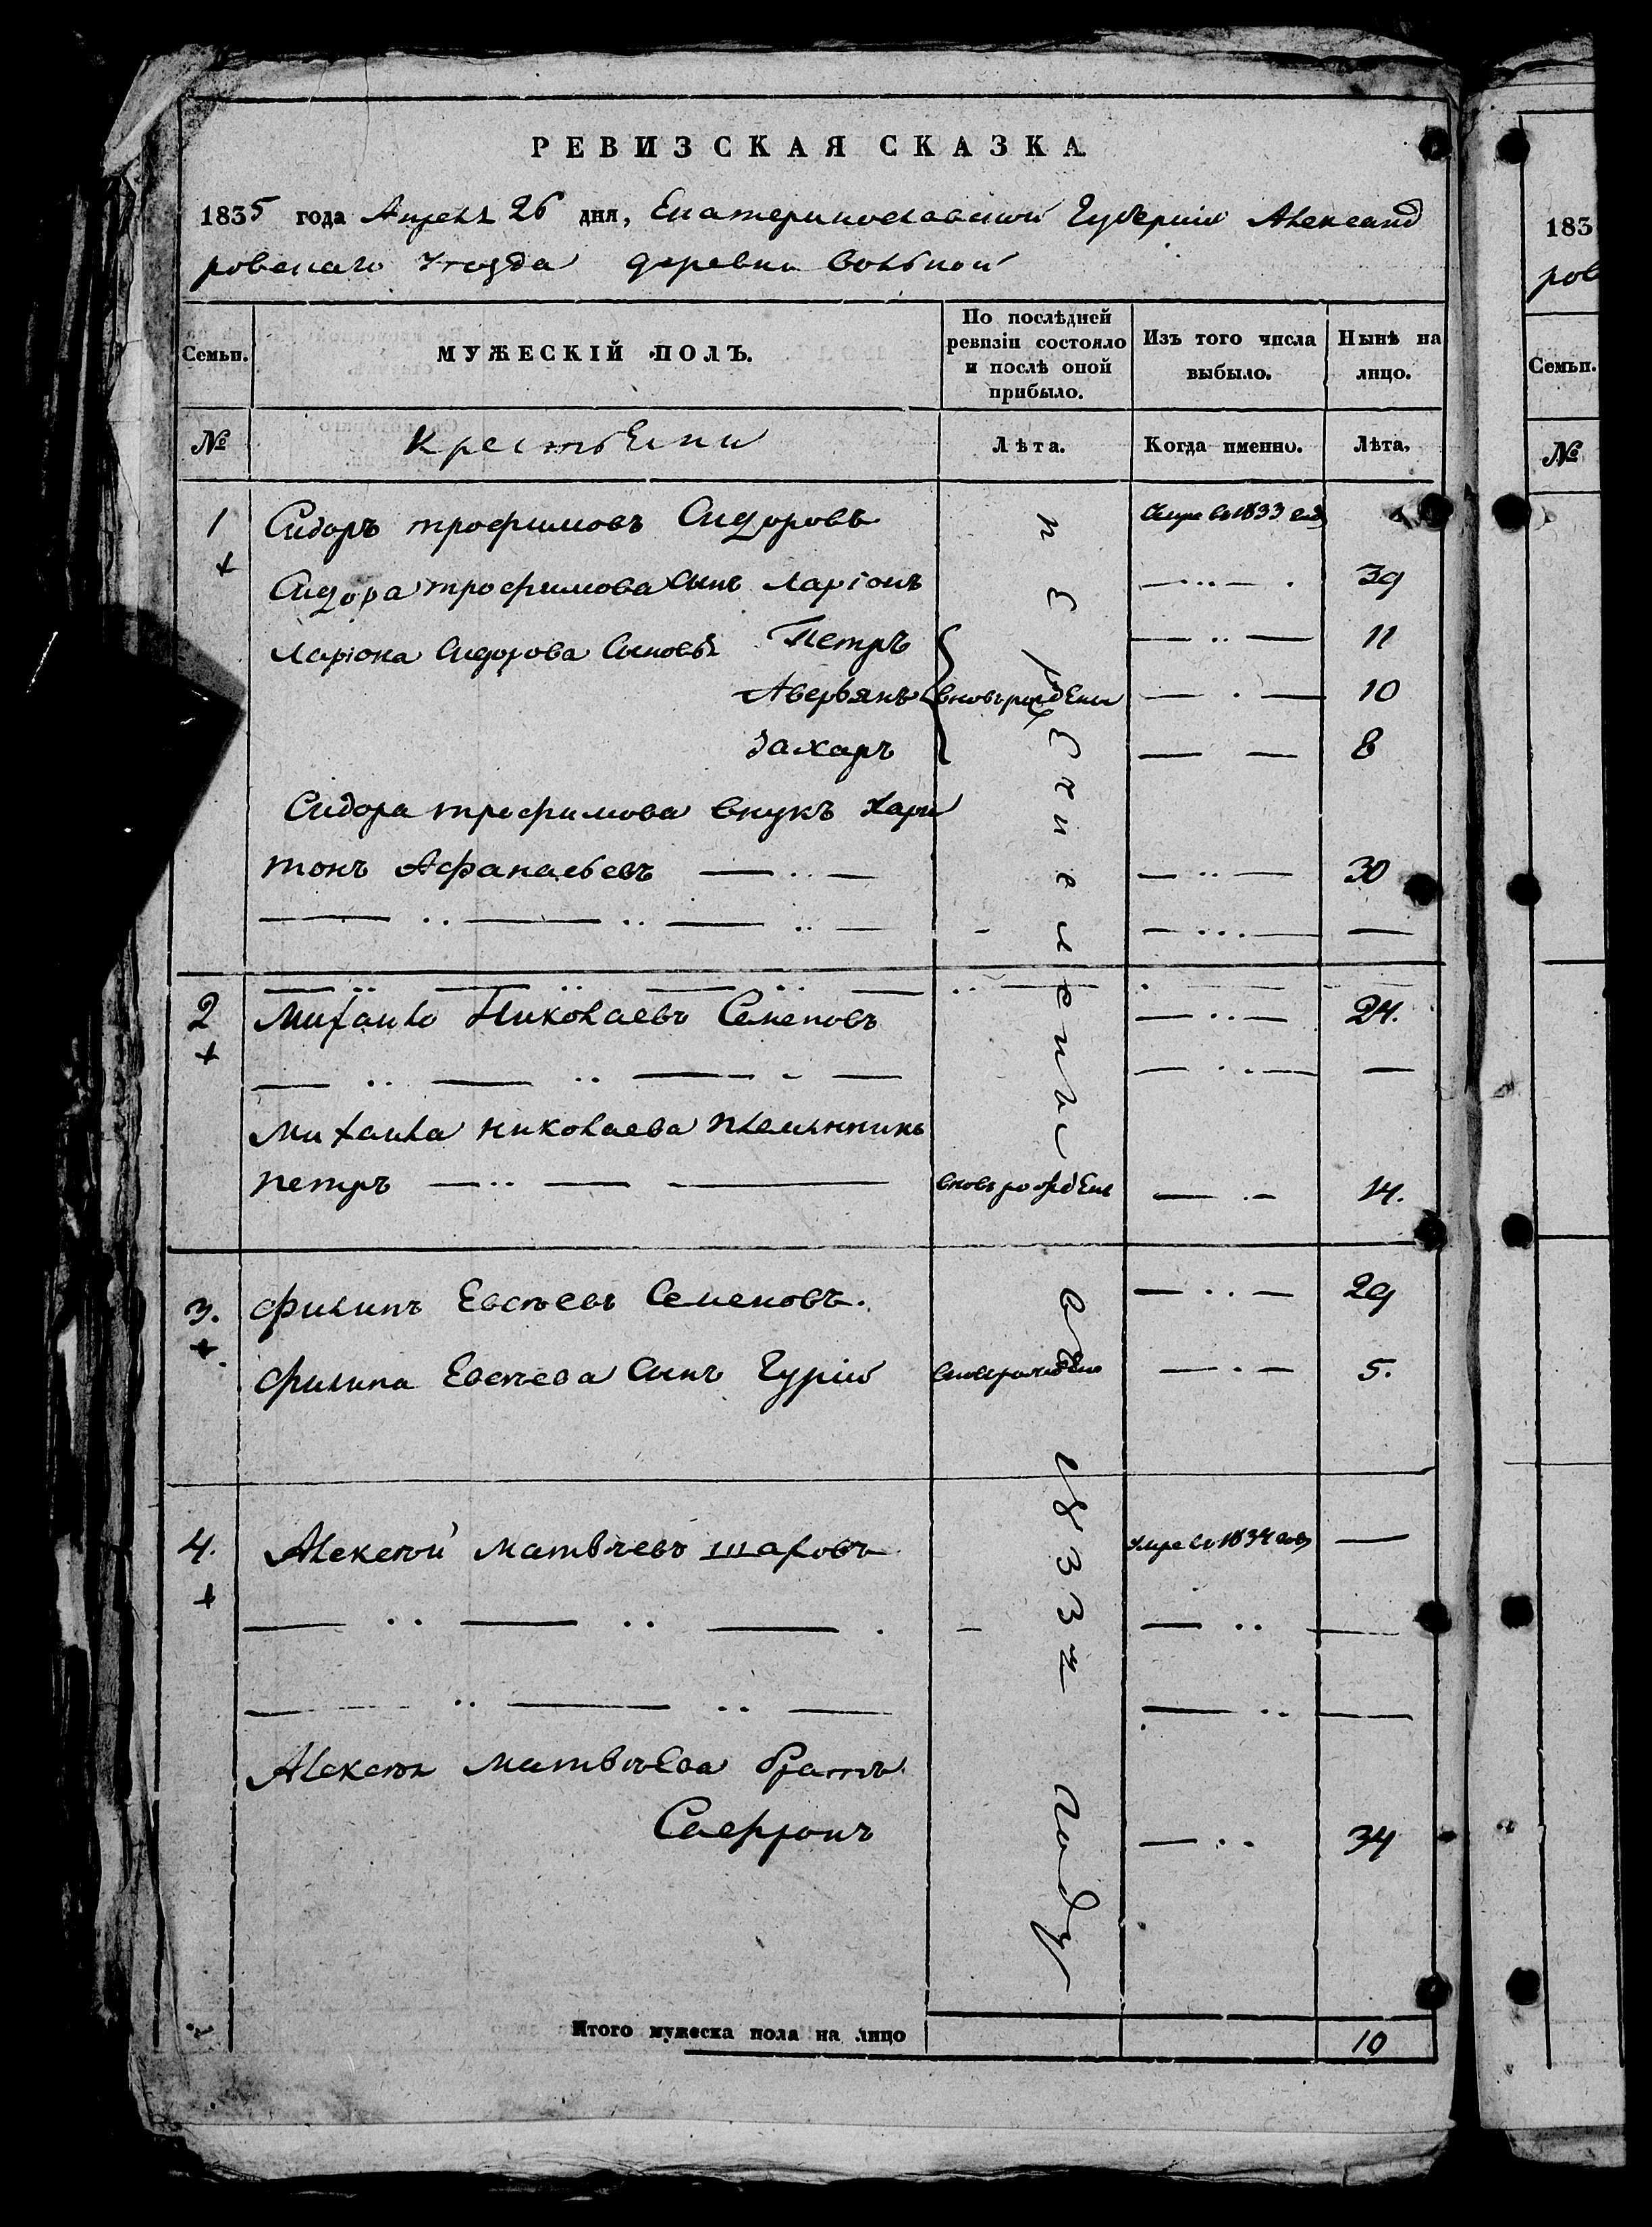 РЕВИЗСКАЯ СКАЗКА
1835 года Апреля 26 дня, Екатеринославской Губерніи Александ
ровскаго Уезда деревни Вольной
Семьи. МУЖЕСКІЙ ПОЛЪ. По послѣдней ревизіи состояло и послѣ оной прибыло. Изъ того числа выбыло. Нынѣ на лицо.
№ Крестьени Лѣта. Когда именно. Лѣта.
1 Сидоръ трофимовъ Сидоровъ Умре въ 1833 год
Сидора трофимова Сынъ Ларіонъ 39
Ларіона Сидорова Сыновья Петръ 11
Аверьянъ вновьрождены 10
Захаръ 8
Сидора трофимова внукъ Хари
тонъ Афанасьевъ 30
2 Михаило Николаевъ Семеновъ 24.
Михаила николаева племянникъ
петръ вновьрожденъ 14.
3. Филипъ Евсѣевъ Семеновъ. 29
Филипа Евсѣева Сынъ Гурій вновьрожденъ 5.
4. Алексѣй Матвѣевъ шаховъ Умре въ 1834 год
Алексѣя Матвѣева братъ
Сафронъ 34
переселены въ 1832 году
Итого мужеска пола на лицо 10
183
ров
Семьи.
№